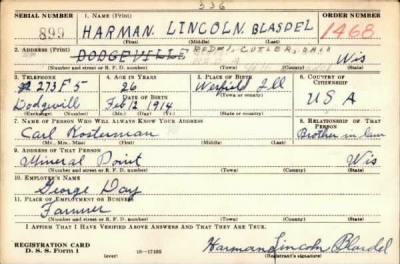 336
SERIAL NUMBER 1. NAME (Print) ORDER NUMBER
899 HARMAN. LINCOLN. BLASDEL 1468
(First) (Middle) (Last)
2. ADDRESS (Print) DODGEVILLE RFD#1, CUTLER, OHIO Wis
(Number and street or R. F. D. number) (Town) (County) (State)
3. TELEPHONE 4. AGE IN YEARS 5. PLACE OF BIRTH 6. COUNTRY OF CITIZENSHIP
273 F 5 26
DATE OF BIRTH (Town or county)
Dodgeville Feb 12 1914 Ill USA
(Exchange) (Number) (Mo.) (Day) (Yr.) (State or country)
7. NAME OF PERSON WHO WILL ALWAYS KNOW YOUR ADDRESS 8. RELATIONSHIP OF THAT PERSON
Carl Rosterman Brother in law
(Mr., Mrs., Miss) (First) (Middle) (Last)
9. ADDRESS OF THAT PERSON
Mineral Point Wis
(Number and street or R. F. D. number) (Town) (County) (State)
10. EMPLOYER'S NAME
George Day
11. PLACE OF EMPLOYMENT OR BUSINESS
Farmer
(Number and street or R. F. D. number) (Town) (County) (State)
I AFFIRM THAT I HAVE VERIFIED ABOVE ANSWERS AND THAT THEY ARE TRUE.
REGISTRATION CARD
D. S. S. Form 1 16—17105 Harman Lincoln Blasdel
(over) (Registrant's signature)